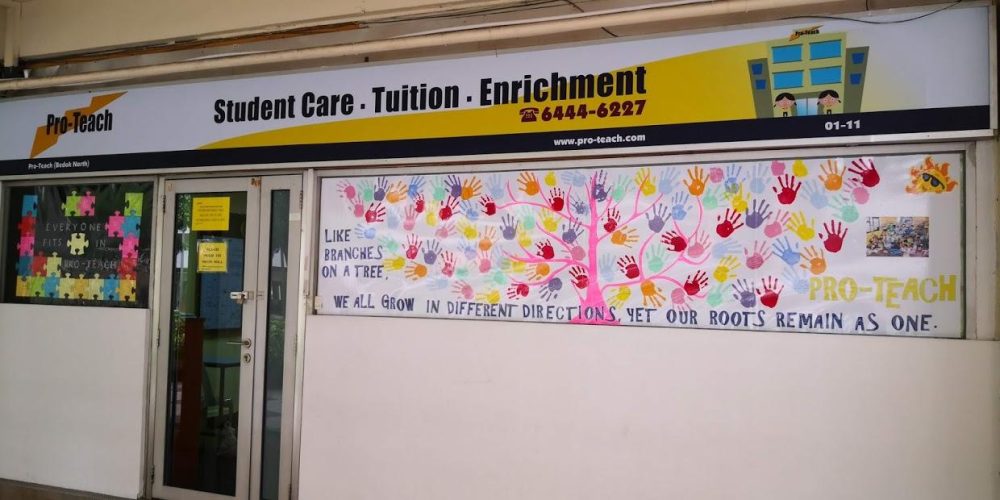 Pro-Teach
Student Care · Tuition · Enrichment
☎6444-6227
www.pro-teach.com
Pro-Teach
01-11
Pro-Teach (Bedok North)
EVERYONE
FITS IN
PRO-TEACH
LIKE
BRANCHES
ON A TREE,
WE ALL GROW IN DIFFERENT DIRECTIONS, YET OUR ROOTS REMAIN AS ONE.
PRO-TEACH